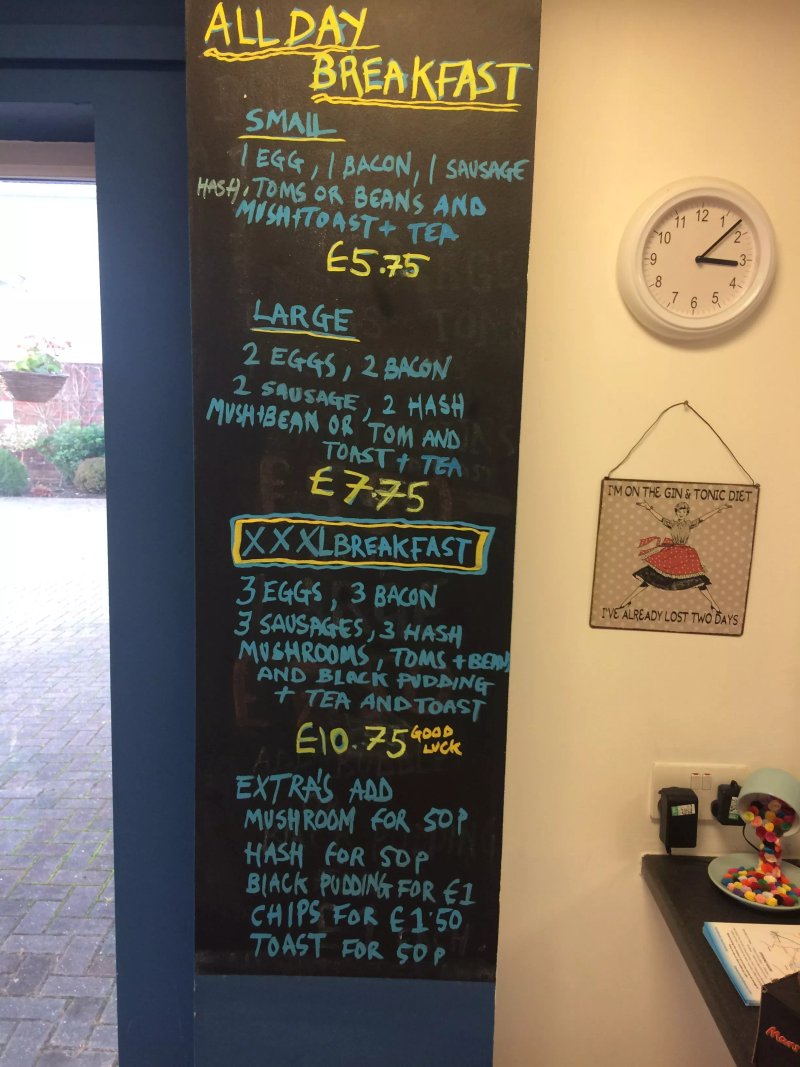 ALL DAY
BREAKFAST
SMALL
1 EGG, 1 BACON, 1 SAUSAGE
HASH, TOMS OR BEANS AND
MUSH+TOAST + TEA
£5.75
LARGE
2 EGGS, 2 BACON
2 SAUSAGE, 2 HASH
MUSH+BEAN OR TOM AND
TOAST + TEA
£7.75
XXXL BREAKFAST
3 EGGS, 3 BACON
3 SAUSAGES, 3 HASH
MUSHROOMS, TOMS + BEANS
AND BLACK PUDDING
+ TEA AND TOAST
£10.75 GOOD
LUCK
EXTRA'S ADD
MUSHROOM FOR 50P
HASH FOR 50P
BLACK PUDDING FOR £1
CHIPS FOR £1.50
TOAST FOR 50P
12
1
2
3
4
5
6
7
8
9
10
11
I'M ON THE GIN & TONIC DIET
I'VE ALREADY LOST TWO DAYS
Mars